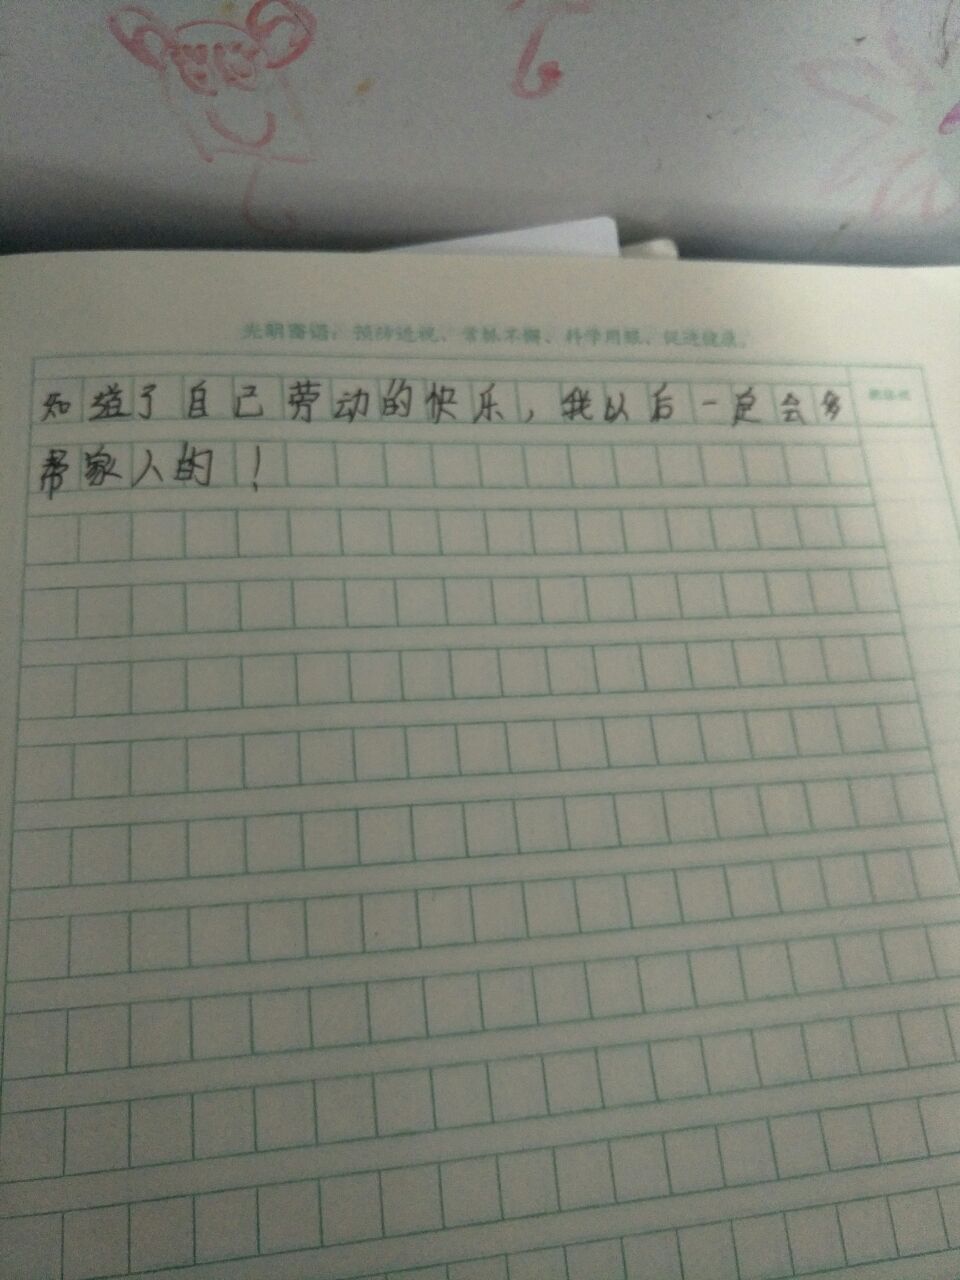 光明寄语：预防近视、常抓不懈、科学用眼、促进健康。
知道了自己劳动的快乐，我以后一定会多
帮家人的！